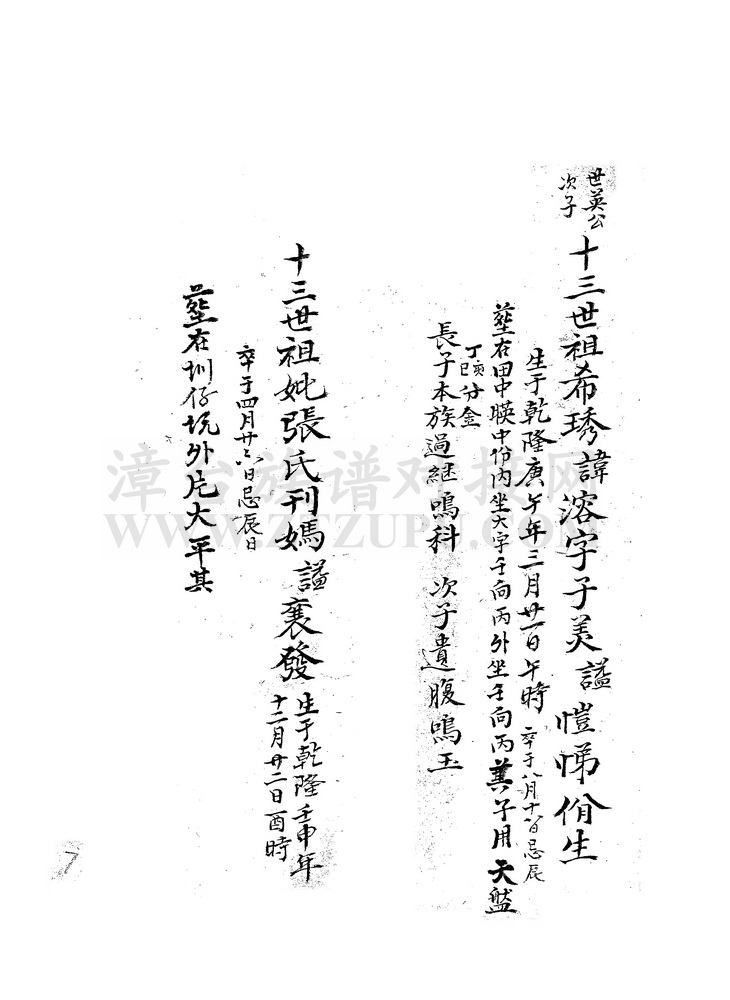 世英公
次子
十三世祖希琇諱溶字子美謚愷悌佾生
生于乾隆庚午年三月廿一日午時 卒于八月十八日忌辰
塟在田中暎中份内坐大字壬向丙外坐壬向丙兼子用天盤
丁亥丁巳分金
長子本族過継鳴科 次子遺腹鳴玉
十三世祖妣張氏刊媽謚襄發
生于乾隆壬申年
十二月廿二日酉時
卒于四月廿六日忌辰日
塟在圳仔坑外片大平其
漳台族谱对接网
WWW.ZTZUPU.COM
7